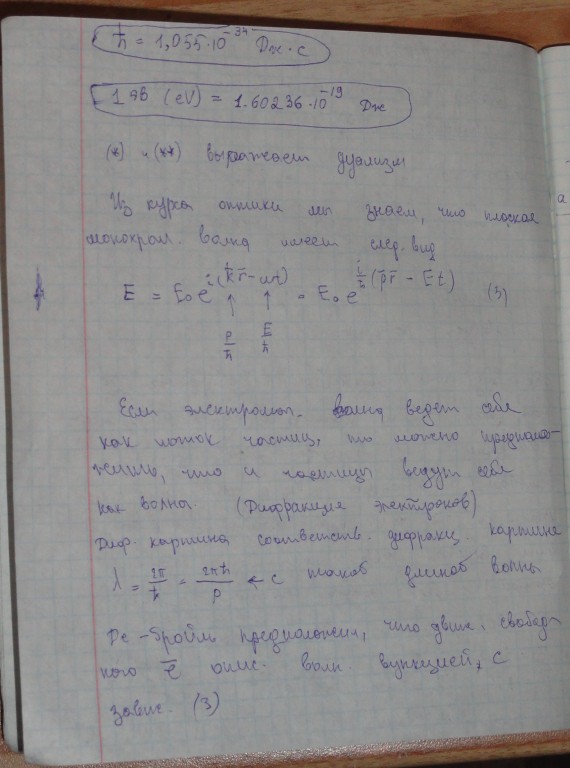 ħ = 1,055·10⁻³⁴ Дж·с
1 эВ (eV) = 1.60236·10⁻¹⁹ Дж
(*) и (**) выражает дуализм
Из курса оптики мы знаем, что плоская
монохром. волна имеет след. вид
E = E₀ e^{i(k̄r̄ - ωt)} = E₀ e^{i/ħ (p̄r̄ - Et)} (3)
↑ ↑
p/ħ E/ħ
Если электромаг. волна ведет себя
как поток частиц, то можно предполо-
жить, что и частицы ведут себя
как волны (Дифракция электронов)
Диф. картина соответств. дифракц. картине
λ = 2π/k = 2πħ/p ← с такой длиной волны
Де-Бройль предположил, что движ. свобод-
ного ē опис. волн. вункцией, с
завис. (3)